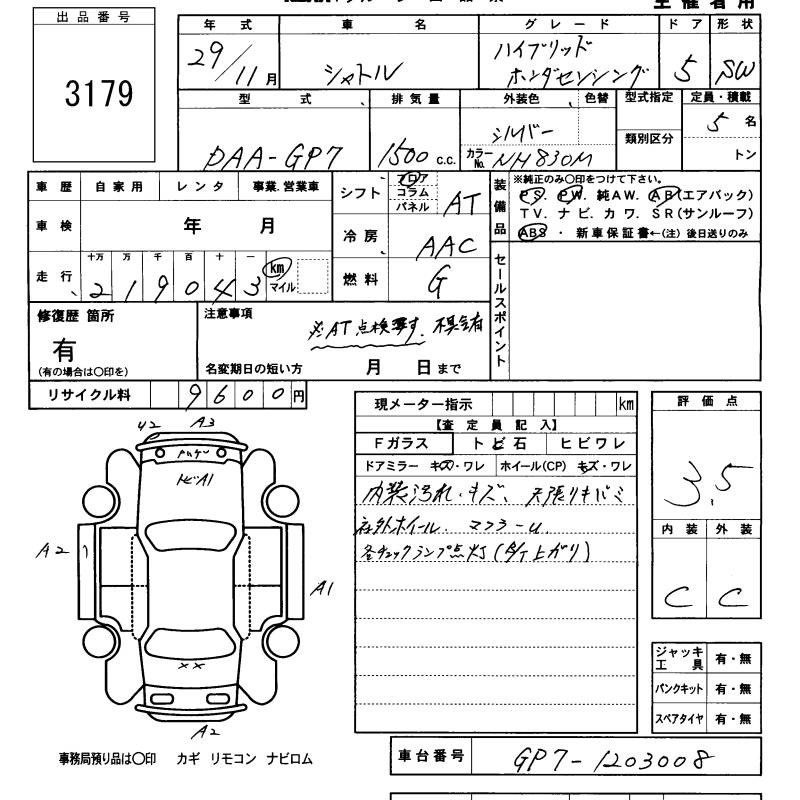 主催者用
出品番号
3179
年式 車名 グレード ドア 形状
29/11月 シャトル ハイブリッド ホンダセンシング 5 SW
型式 排気量 外装色 色替 型式指定 定員・積載
類別区分
DAA-GP7 1500 c.c. シルバー カラーNo. NH830M 5名
トン
車歴 自家用 レンタ 事業.営業車
車検 年 月
走行 十万 万 千 百 十 一
219043 km マイル
シフト フロア コラム パネル AT
冷房 AAC
燃料 G
装備品
※純正のみ〇印をつけて下さい。
PS. PW. 純AW. AB(エアバック)
TV. ナビ. カワ. SR(サンルーフ)
ABS ・ 新車保証書←(注) 後日送りのみ
セールスポイント
修復歴 箇所
有
(有の場合は〇印を)
注意事項
※AT点検要す. 不具合有
名変期日の短い方 月 日まで
リサイクル料 9600円
現メーター指示 km
【査定員記入】
Fガラス トビ石 ヒビワレ
ドアミラー キズ・ワレ ホイール(CP) キズ・ワレ
内装汚れ・キズ、天張リキバミ
社外ホイール. マフラー
各チェックランプ点灯
評価点
3.5
内装 外装
C C
ジャッキ工具 有・無
パンクキット 有・無
スペアタイヤ 有・無
Y2 A3
トビA1
A2
A1
××
A2
事務局預り品は〇印 カギ リモコン ナビロム
車台番号 GP7-1203008